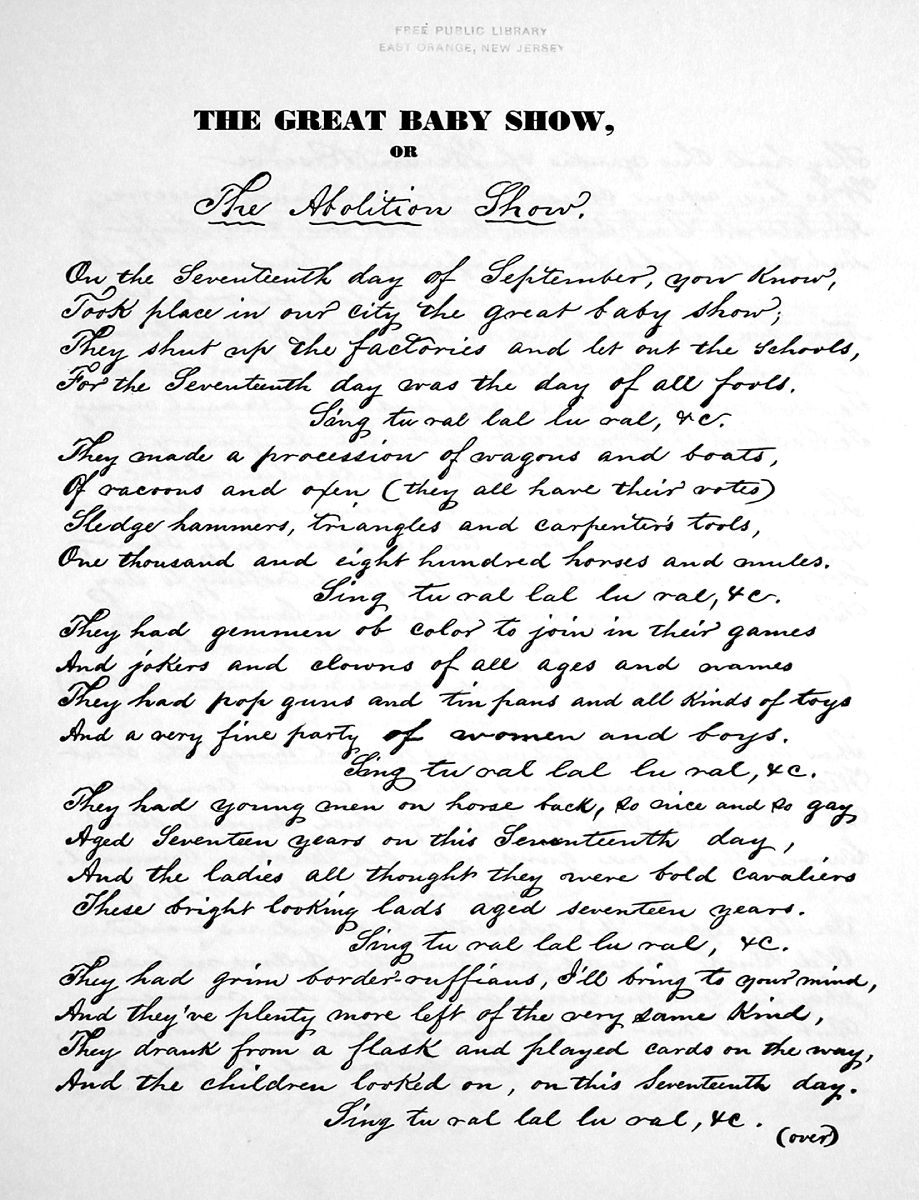 FREE PUBLIC LIBRARY
EAST ORANGE, NEW JERSEY
THE GREAT BABY SHOW,
OR
The Abolition Show.
On the Seventeenth day of September, you know,
Took place in our city the great baby show;
They shut up the factories and let out the schools,
For the Seventeenth day was the day of all fools.
Sing tu ral lal lu ral, &c.
They made a procession of wagons and boats,
Of racoons and oxen (they all have their votes)
Sledge hammers, triangles and carpenter's tools,
One thousand and eight hundred horses and mules.
Sing tu ral lal lu ral, &c.
They had gemmen ob color to join in their games
And jokers and clowns of all ages and names
They had pop guns and tin pans and all kinds of toys
And a very fine party of women and boys.
Sing tu ral lal lu ral, &c.
They had young men on horse back, so nice and so gay
Aged Seventeen years on this Seventeenth day,
And the ladies all thought they were bold cavaliers
These bright looking lads aged seventeen years.
Sing tu ral lal lu ral, &c.
They had grim border-ruffians, I'll bring to your mind,
And they've plenty more left of the very same kind,
They drank from a flask and played cards on the way,
And the children looked on, on this Seventeenth day.
Sing tu ral lal lu ral, &c.
(over)